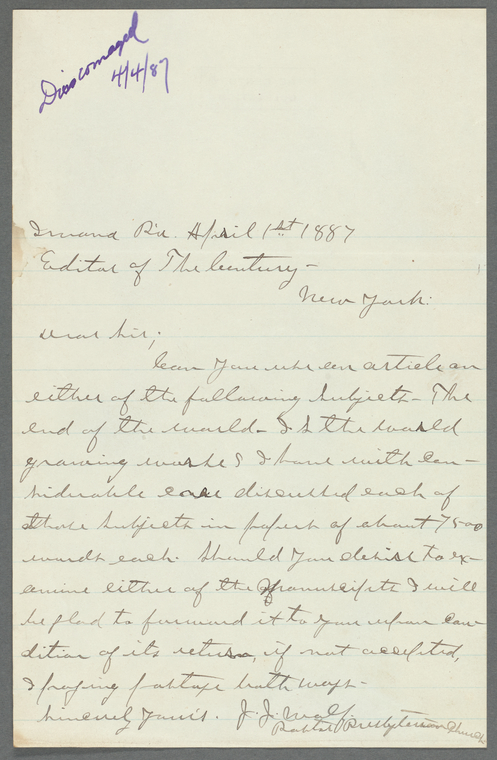 Discouraged
4/4/87
Pa. April 1st 1887
Editor of The Century-
New York:
Dear Sir;
Can you use an article on
either of the following subjects- The
end of the world- Is the world
growing worse? I have with con-
siderable care discussed each of
those subjects in papers of about 7500
words each. Should you desire to ex-
amine either of the manuscripts I will
be glad to forward it to you upon con-
dition of its return, if not accepted,
I paying postage both ways-
Sincerely yours. J. J. Wolf
Pastor Presbyterian Church